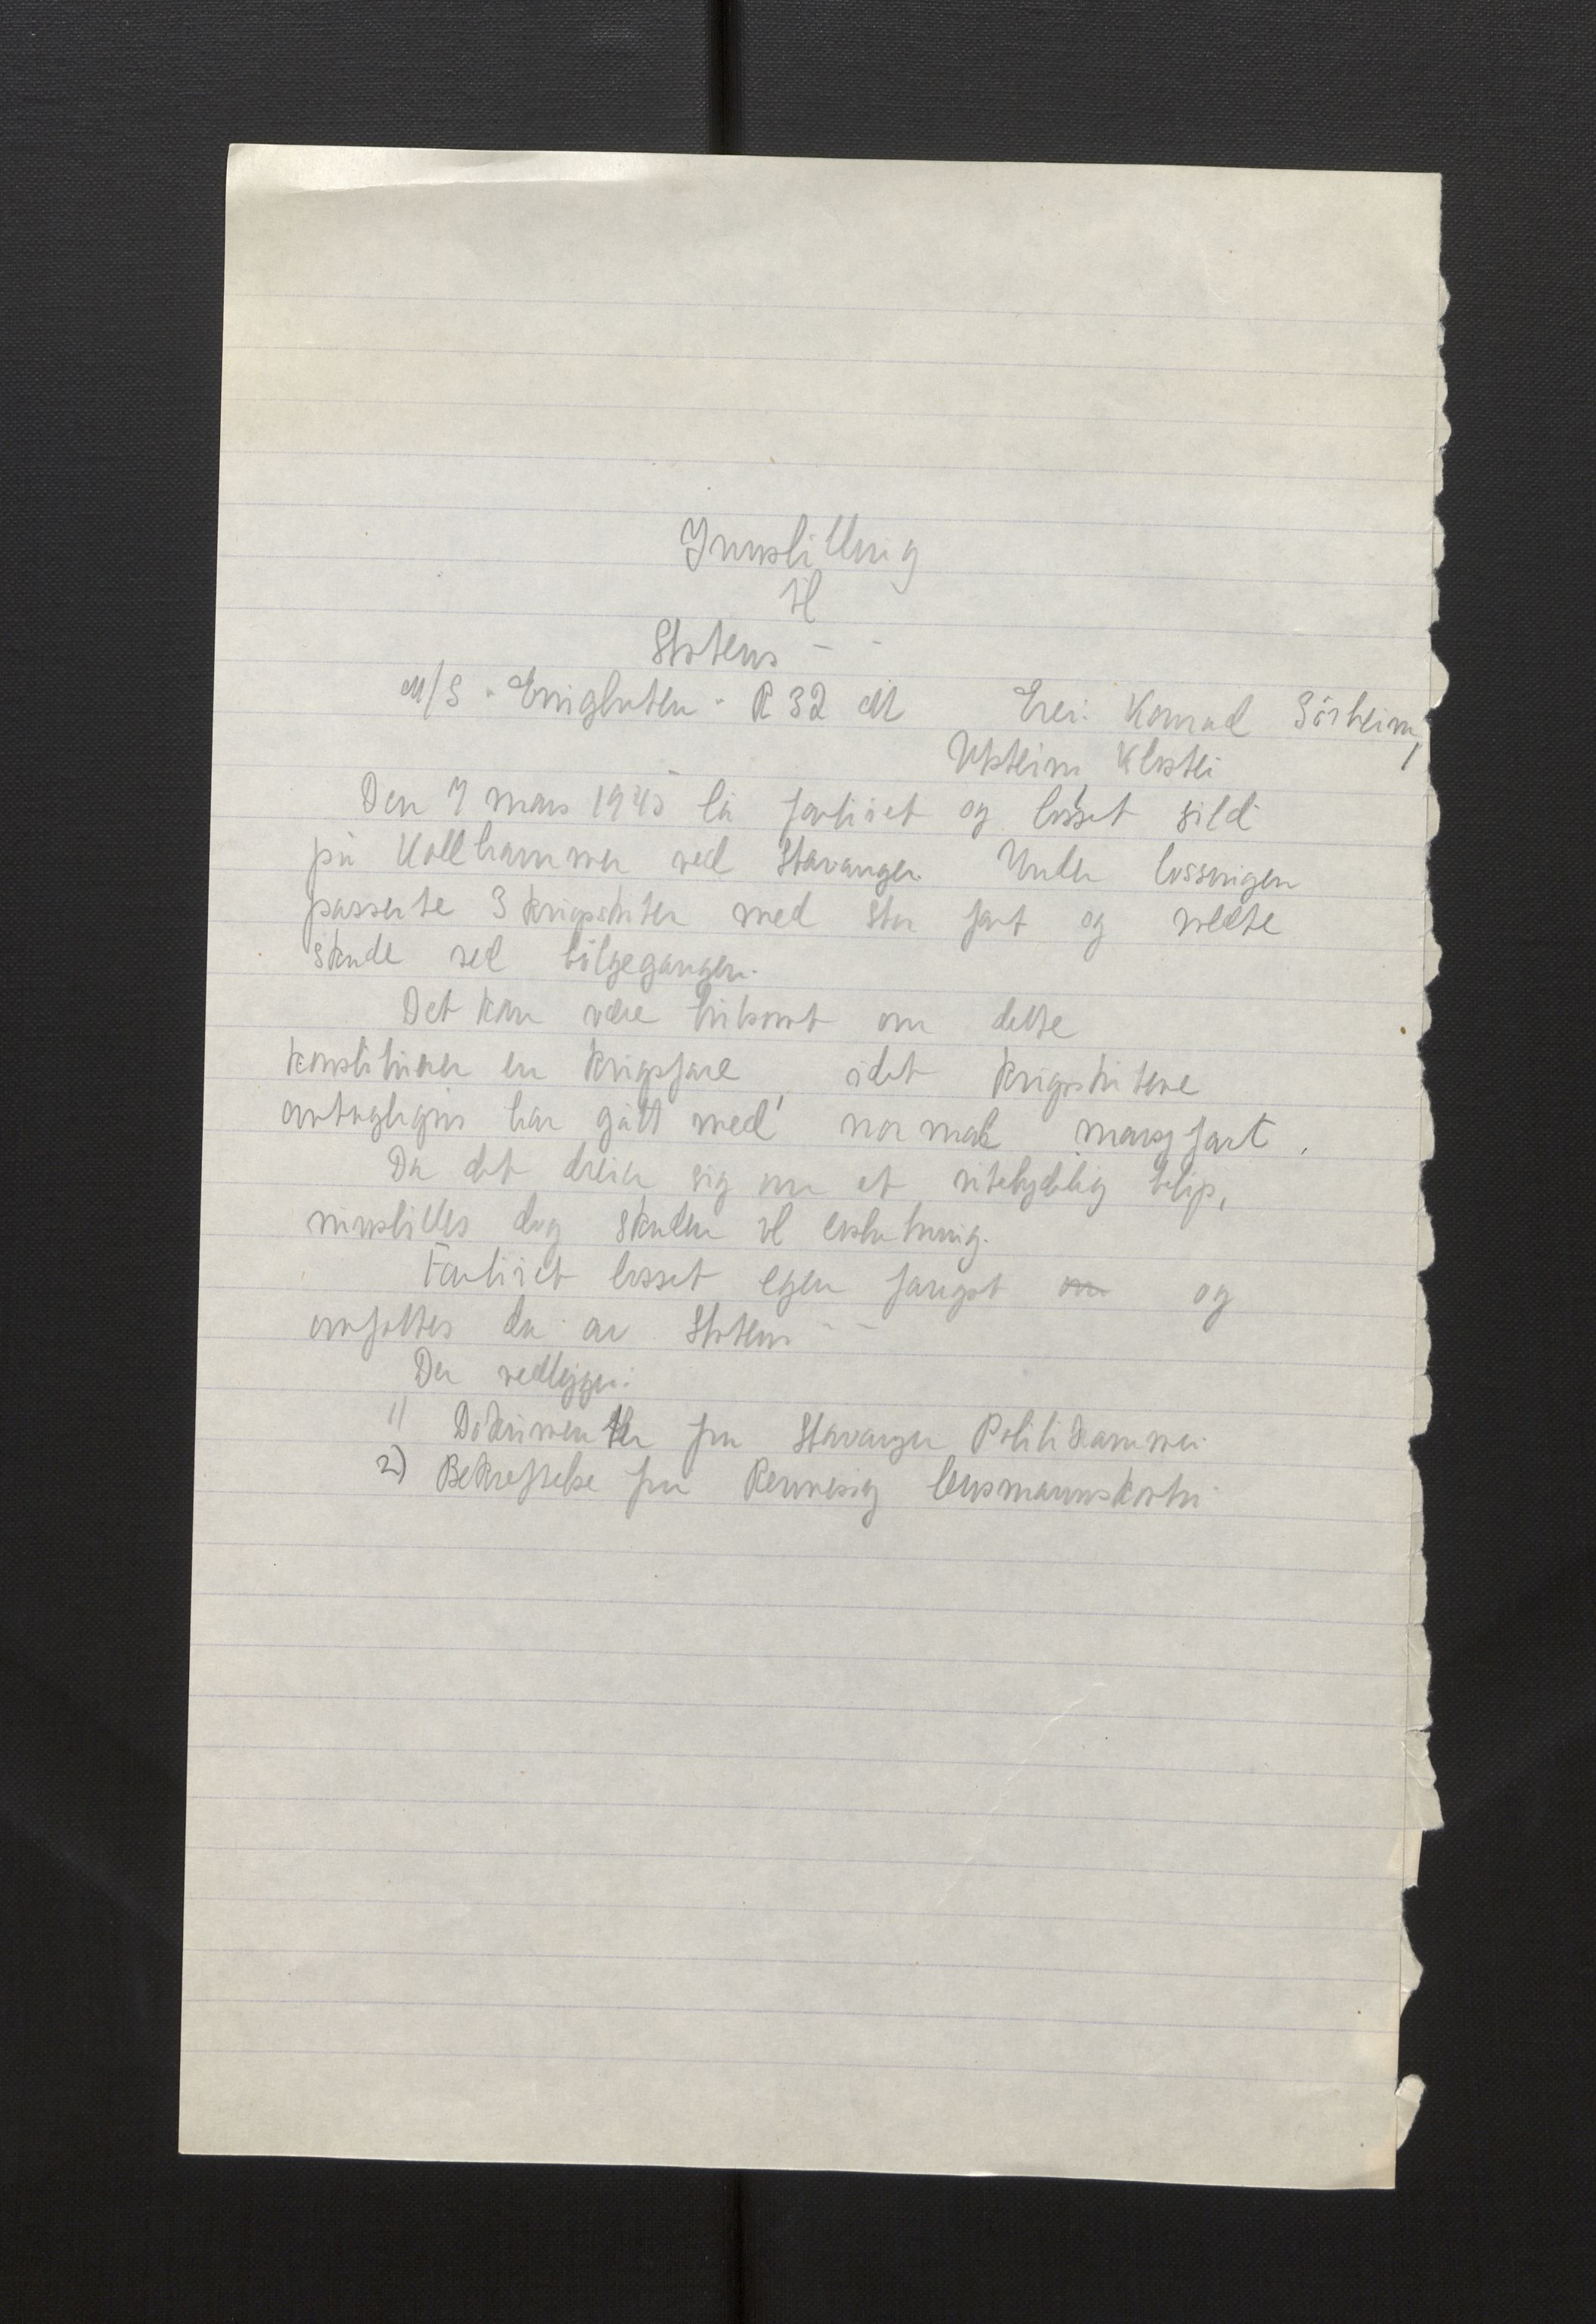 Innstilling
til
Statens - -
M/S "Enigheten" R 32 M Eier: Konrad Sörheim,
Utstein Kloster
Den 7 mars 1945 lå fartöiet og losset sild
på Kallhammer ved Stavanger. Under lossingen
passerte 3 krigsskuter med stor fart og voldte
skade ved bölgegangen.
Det kan være tvilsomt om dette
konstituerer en krigsfare, idet krigsskutene
antageligvis har gått med normal marsjfart.
Da det dreier sig om et ubetydelig belöp,
innstilles dog skaden til erstatning.
Fartöiet losset egen fangst om og
omfattes da av Statens - -
Der vedlegges:
1) Dokumenter fra Stavanger Politikammer.
2) Bekreftelse fra Rennesöy lensmannskontor